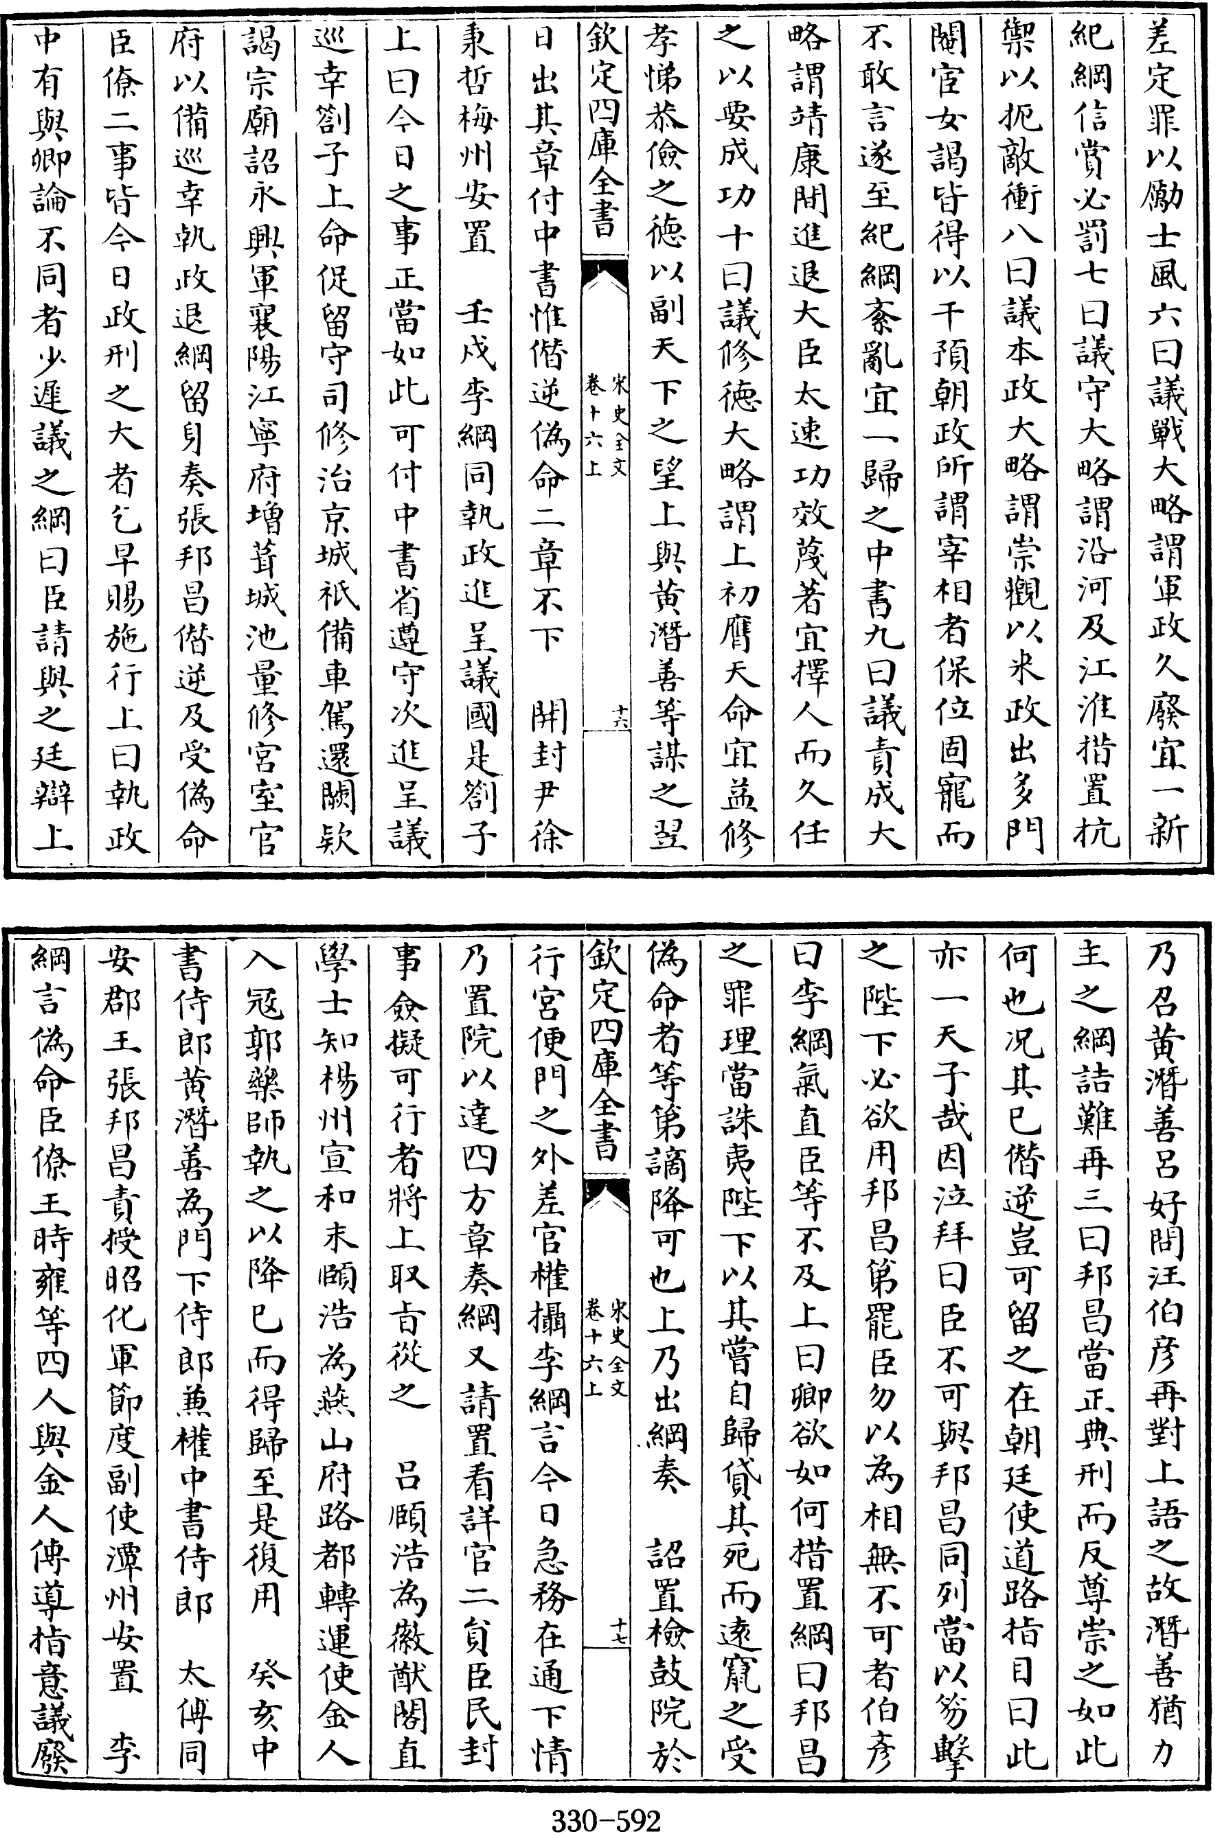 差定罪以勵士風六曰議戰大略謂軍政久廢宜一新
紀綱信賞必罰七曰議守大略謂沿河及江淮措置抗
禦以扼敵衝八曰議本政大略謂崇觀以來政出多門
閹宦女謁皆得以干預朝政所謂宰相者保位固寵而
不敢言遂至紀綱紊亂宜一歸之中書九曰議責成大
略謂靖康間進退大臣太速功效蔑著宜擇人而久任
之以要成功十曰議修德大略謂上初膺天命宜益修
孝悌恭儉之德以副天下之望上與黄潛善等謀之翌
欽定四庫全書
宋史全文
卷十六上
十六
日出其章付中書惟僭逆偽命二章不下　開封尹徐
秉哲梅州安置　壬戍李綱同執政進呈議國是劄子
上曰今日之事正當如此可付中書省遵守次進呈議
巡幸劄子上命促留守司修治京城祇備車駕還闕欵
謁宗廟詔永興軍襄陽江寧府增葺城池量修宮室官
府以備巡幸執政退綱留身奏張邦昌僭逆及受偽命
臣僚二事皆今日政刑之大者乞早賜施行上曰執政
中有與卿論不同者少遲議之綱曰臣請與之廷辯上
乃召黄潛善吕好問汪伯彦再對上語之故潛善猶力
主之綱詰難再三曰邦昌當正典刑而反尊崇之如此
何也况其已僭逆豈可留之在朝廷使道路指目曰此
亦一天子哉因泣拜曰臣不可與邦昌同列當以笏擊
之陛下必欲用邦昌第罷臣勿以為相無不可者伯彦
曰李綱氣直臣等不及上曰卿欲如何措置綱曰邦昌
之罪理當誅夷陛下以其嘗自歸貸其死而逺竄之受
偽命者等第謫降可也上乃出綱奏　詔置檢鼓院於
欽定四庫全書
宋史全文
卷十六上
十七
行宮便門之外差官權攝李綱言今日急務在通下情
乃置院以達四方章奏綱又請置看詳官二員臣民封
事僉擬可行者將上取旨從之　吕頤浩為徽猷閣直
學士知楊州宣和末頤浩為燕山府路都轉運使金人
入寇郭藥師執之以降已而得歸至是復用　癸亥中
書侍郎黄潛善為門下侍郎兼權中書侍郎　太傅同
安郡王張邦昌責授昭化軍節度副使潭州安置　李
綱言偽命臣僚王時雍等四人與金人傳導指意議廢
330-592